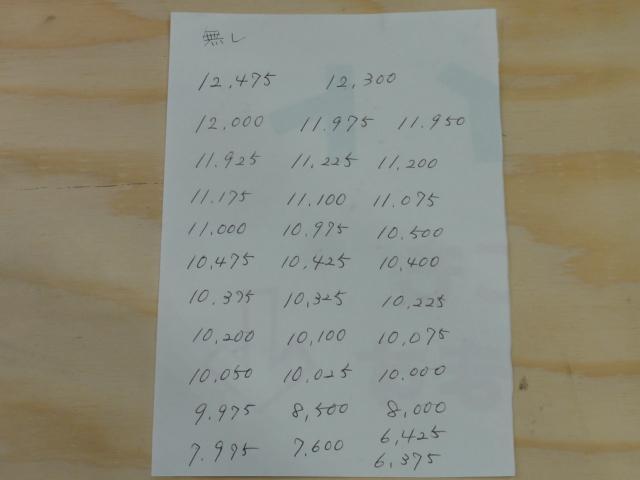 無し
12,475 12,300
12,000 11.975 11.950
11.925 11.225 11,200
11.175 11,100 11.075
11,000 10.975 10.500
10,475 10,425 10,400
10,375 10,325 10,225
10,200 10,100 10,075
10,050 10,025 10.000
9.975 8,500 8,000
7.975 7,600 6,425
6,375